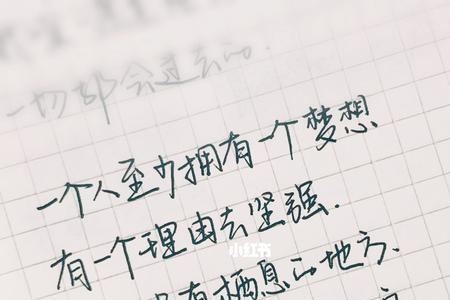 一切都会过去的.
一个人至少拥有一个梦想
有一个理由去坚强.
小红书
有栖息的地方.